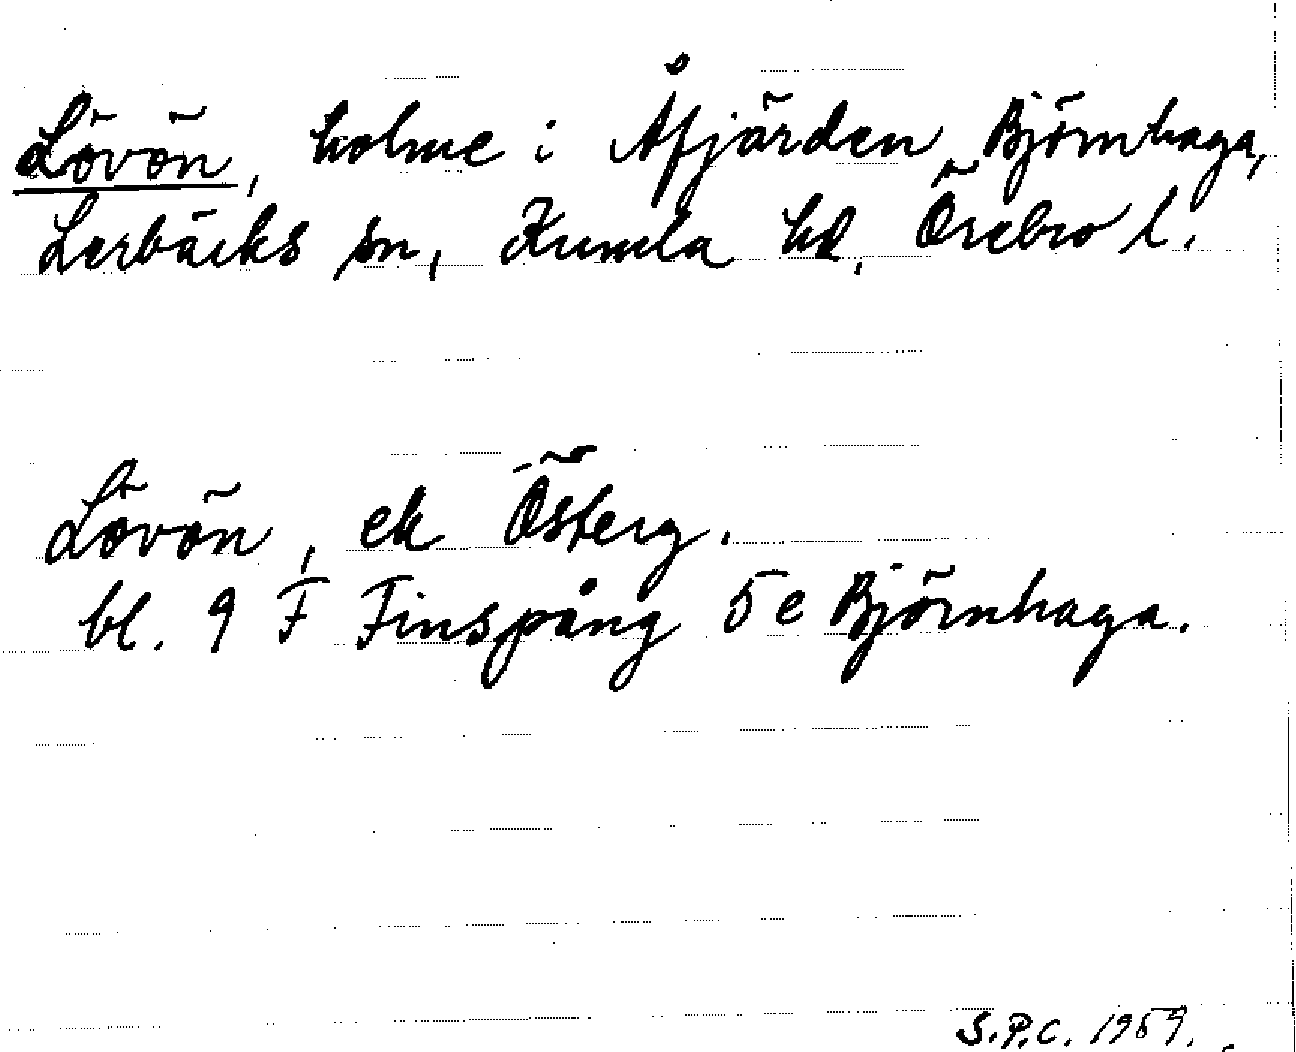 Lövön, holme i Åfjärden, Björnhaga,
Lerbäcks sn, Kumla hd, Örebro l.
Lövön, ek Österg.
bl. 9 F Finspång 5 e Björnhaga.
S.P.C. 1959.